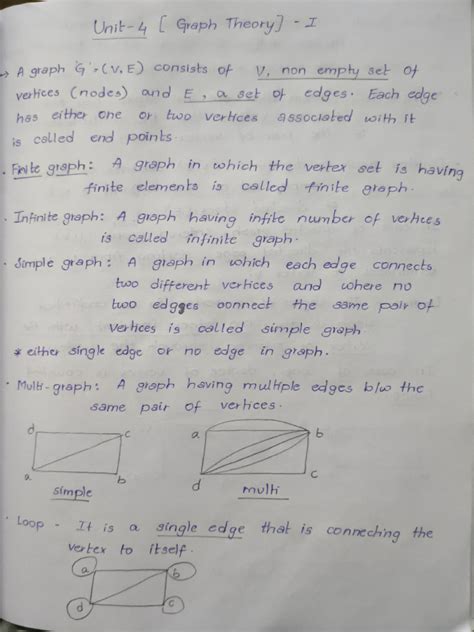 Unit-4 [Graph Theory] - I
→ A graph 'G' = (V, E) consists of V, non empty set of
vertices (nodes) and E, a set of edges. Each edge
has either one or two vertices associated with it
is called end points
• Finite graph: A graph in which the vertex set is having
finite elements is called finite graph.
• Infinite graph: A graph having infite number of vertices
is called infinite graph.
• Simple graph: A graph in which each edge connects
two different vertices and where no
two edgges connect the same pair of
vertices is called simple graph
* either single edge or no edge in graph.
• Multi-graph: A graph having multiple edges b/w the
same pair of vertices.
d c a b
a b d c
simple multi
• Loop - It is a single edge that is connecting the
vertex to itself.
a b
d c